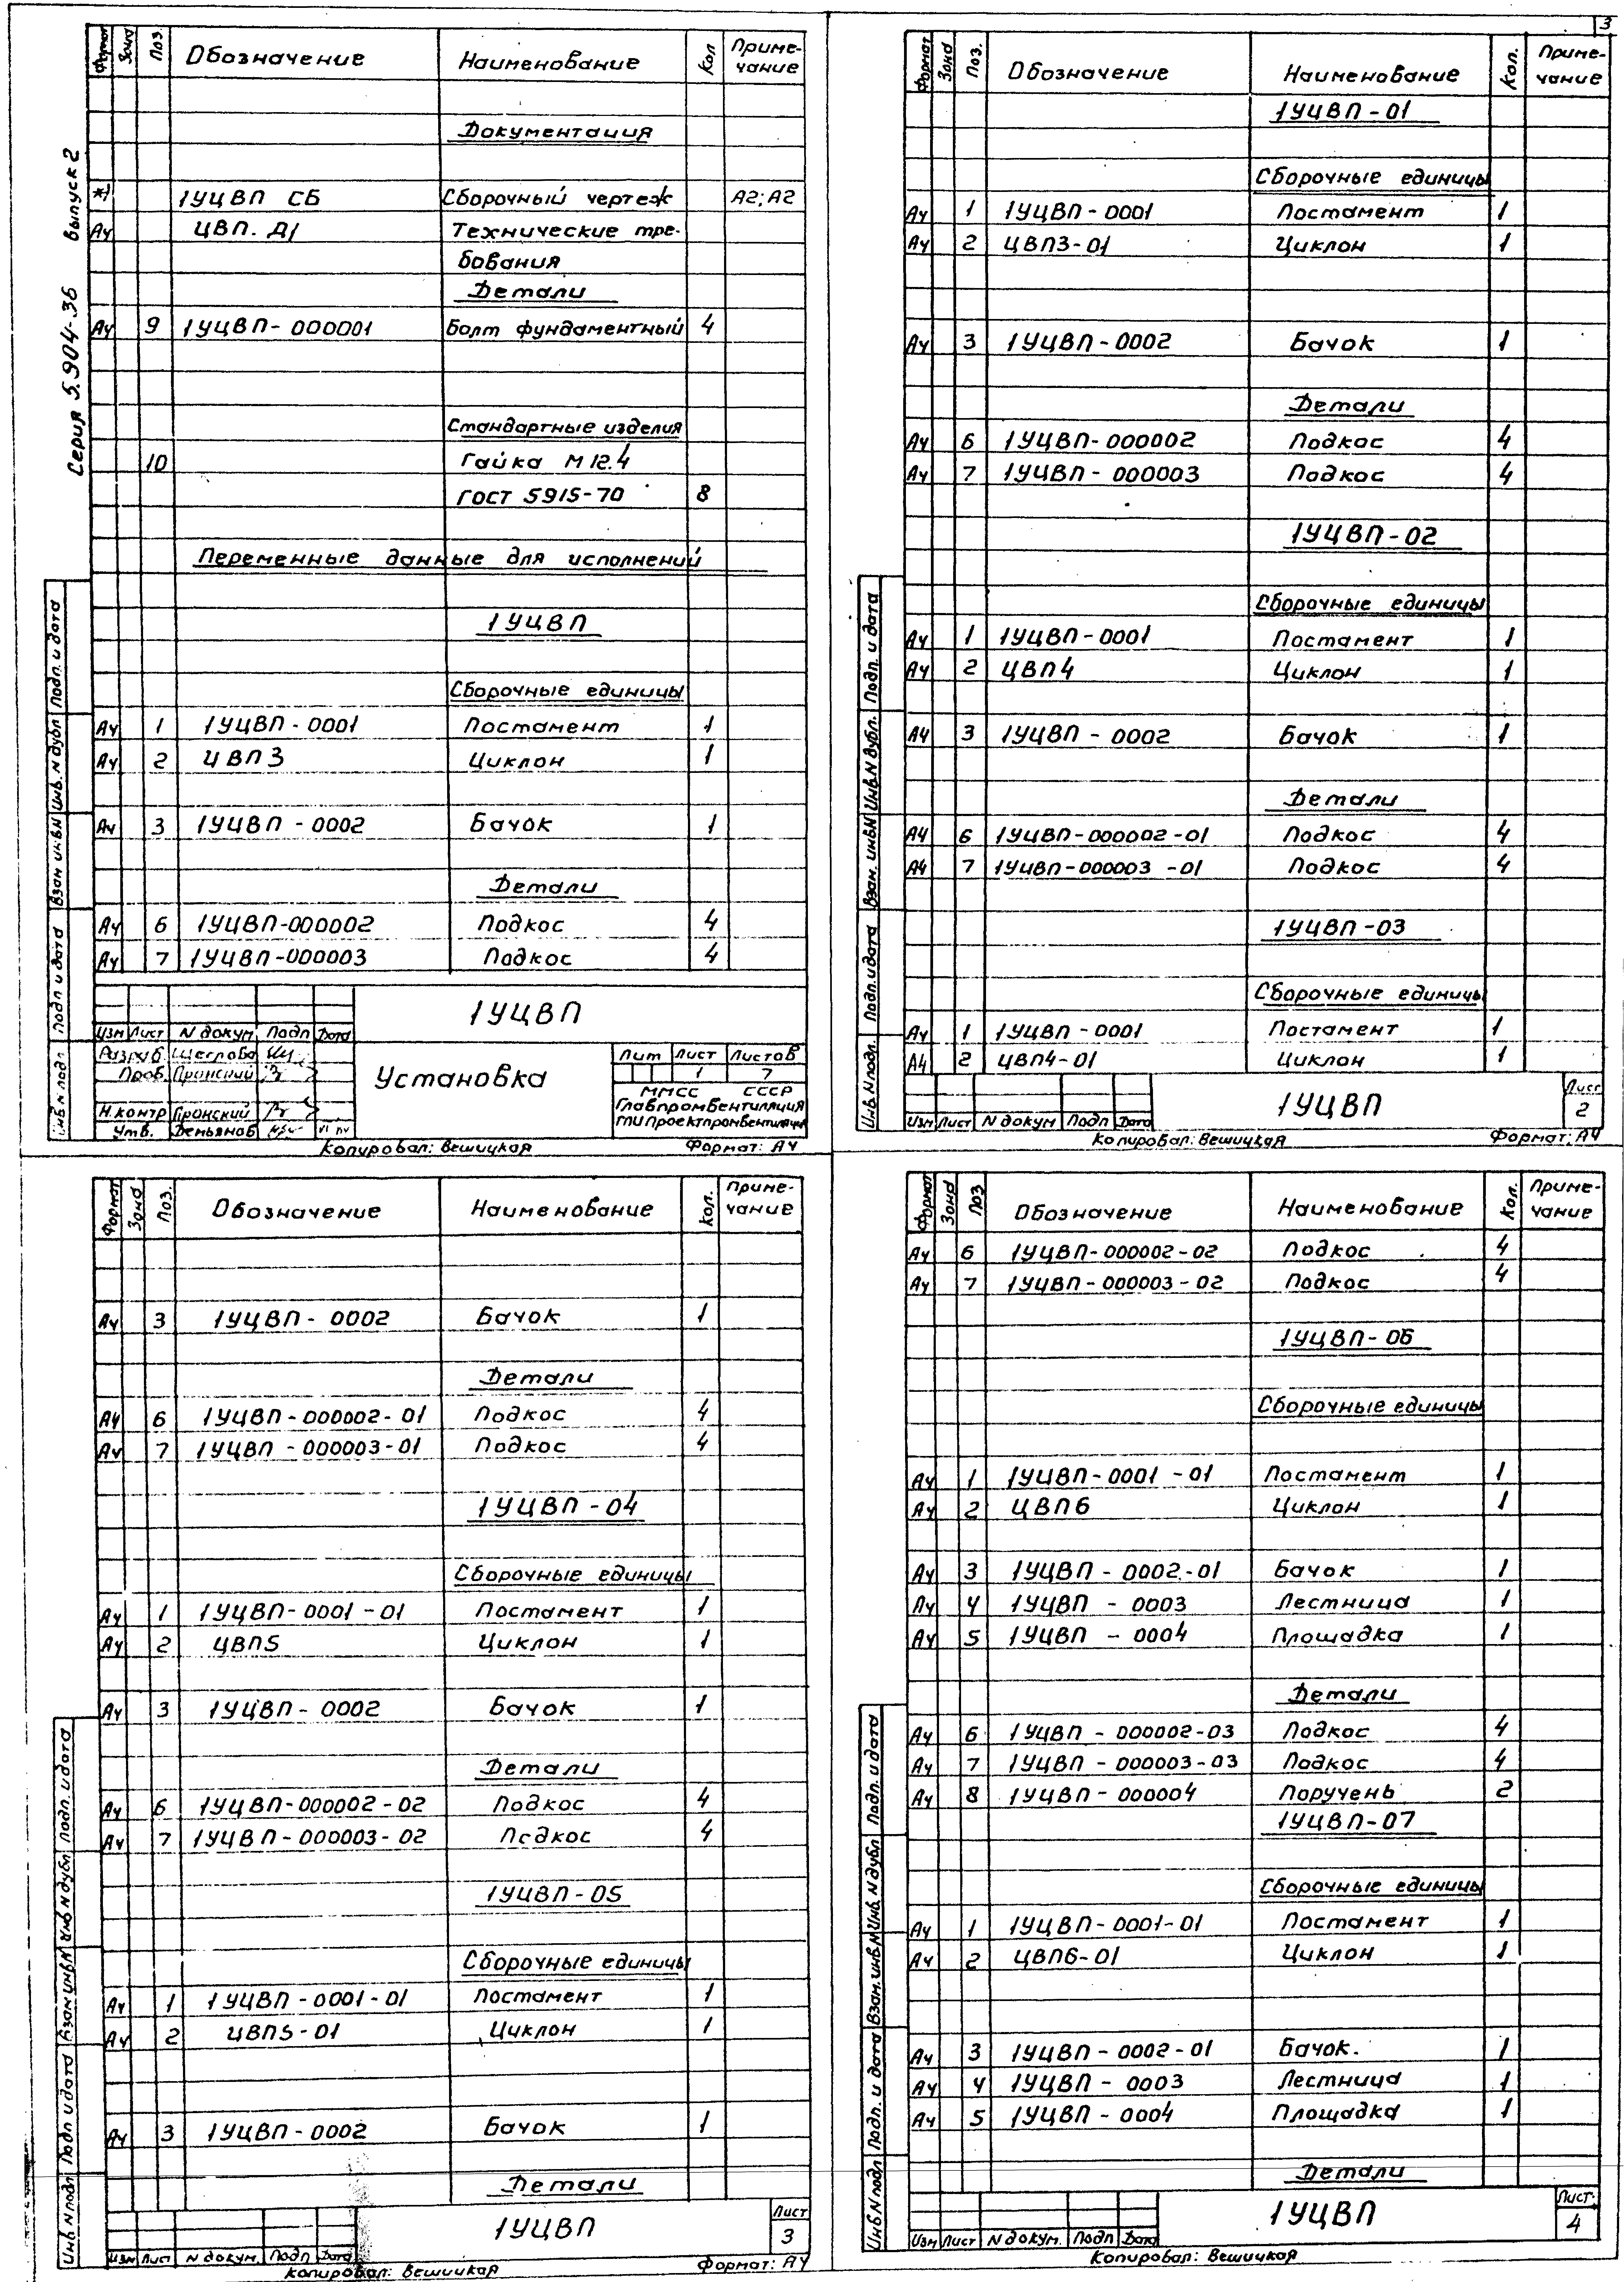 3
Серия 5.904-36 выпуск 2
Формат Зона Поз. Обозначение Наименование Кол Приме-
чание
Документация
*) 1УЦВП СБ Сборочный чертеж А2; А2
А4 ЦВП. Д1 Технические тре-
бования
Детали
А4 9 1УЦВП-000001 Болт фундаментный 4
Стандартные изделия
10 Гайка М12.4
ГОСТ 5915-70 8
Переменные данные для исполнений
1УЦВП
Сборочные единицы
А4 1 1УЦВП-0001 Постамент 1
А4 2 ЦВП3 Циклон 1
А4 3 1УЦВП-0002 Бачок 1
Детали
А4 6 1УЦВП-000002 Подкос 4
А4 7 1УЦВП-000003 Подкос 4
Инв. N подл Подп и дата Взам инв N Инв. N дубл Подп. и дата
1УЦВП
Изм Лист N докум. Подп Дата
Разраб. Щеглова
Пров. Пронский
Н.контр Пронский
Утв. Демьянов
Установка
Лит Лист Листов
1 7
ММСС СССР
Главпромвентиляция
ГПИ Проектпромвентиляция
Копировал: Вешицкая Формат: А4
Формат Зона Поз. Обозначение Наименование Кол. Приме-
чание
1УЦВП-01
Сборочные единицы
А4 1 1УЦВП-0001 Постамент 1
А4 2 ЦВП3-01 Циклон 1
А4 3 1УЦВП-0002 Бачок 1
Детали
А4 6 1УЦВП-000002 Подкос 4
А4 7 1УЦВП-000003 Подкос 4
1УЦВП-02
Сборочные единицы
А4 1 1УЦВП-0001 Постамент 1
А4 2 ЦВП4 Циклон 1
А4 3 1УЦВП-0002 Бачок 1
Детали
А4 6 1УЦВП-000002-01 Подкос 4
А4 7 1УЦВП-000003-01 Подкос 4
1УЦВП-03
Сборочные единицы
А4 1 1УЦВП-0001 Постамент 1
А4 2 ЦВП4-01 Циклон 1
Инв. N подл. Подп. и дата Взам. инв N Инв. N дубл. Подп. и дата
Изм Лист N докум Подп Дата
1УЦВП
Лист
2
Копировал: Вешицкая Формат: А4
Формат Зона Поз. Обозначение Наименование Кол. Приме-
чание
А4 3 1УЦВП-0002 Бачок 1
Детали
А4 6 1УЦВП-000002-01 Подкос 4
А4 7 1УЦВП-000003-01 Подкос 4
1УЦВП-04
Сборочные единицы
А4 1 1УЦВП-0001-01 Постамент 1
А4 2 ЦВП5 Циклон 1
А4 3 1УЦВП-0002 Бачок 1
Детали
А4 6 1УЦВП-000002-02 Подкос 4
А4 7 1УЦВП-000003-02 Подкос 4
1УЦВП-05
Сборочные единицы
А4 1 1УЦВП-0001-01 Постамент 1
А4 2 ЦВП5-01 Циклон 1
А4 3 1УЦВП-0002 Бачок 1
Детали
Инв N подл Подп и дата Взам инв N Инв N дубл Подп. и дата
Изм Лист N докум. Подп Дата
1УЦВП
Лист
3
Копировал: Вешицкая Формат: А4
Формат Зона Поз Обозначение Наименование Кол. Приме-
чание
А4 6 1УЦВП-000002-02 Подкос 4
А4 7 1УЦВП-000003-02 Подкос 4
1УЦВП-06
Сборочные единицы
А4 1 1УЦВП-0001-01 Постамент 1
А4 2 ЦВП6 Циклон 1
А4 3 1УЦВП-0002-01 Бачок 1
А4 4 1УЦВП-0003 Лестница 1
А4 5 1УЦВП-0004 Площадка 1
Детали
А4 6 1УЦВП-000002-03 Подкос 4
А4 7 1УЦВП-000003-03 Подкос 4
А4 8 1УЦВП-000004 Поручень 2
1УЦВП-07
Сборочные единицы
А4 1 1УЦВП-0001-01 Постамент 1
А4 2 ЦВП6-01 Циклон 1
А4 3 1УЦВП-0002-01 Бачок. 1
А4 4 1УЦВП-0003 Лестница 1
А4 5 1УЦВП-0004 Площадка 1
Детали
Инв N подл Подп. и дата Взам. инв. N Инв. N дубл Подп. и дата
Изм Лист N докум. Подп Дата
1УЦВП
Лист.
4
Копировал: Вешицкая